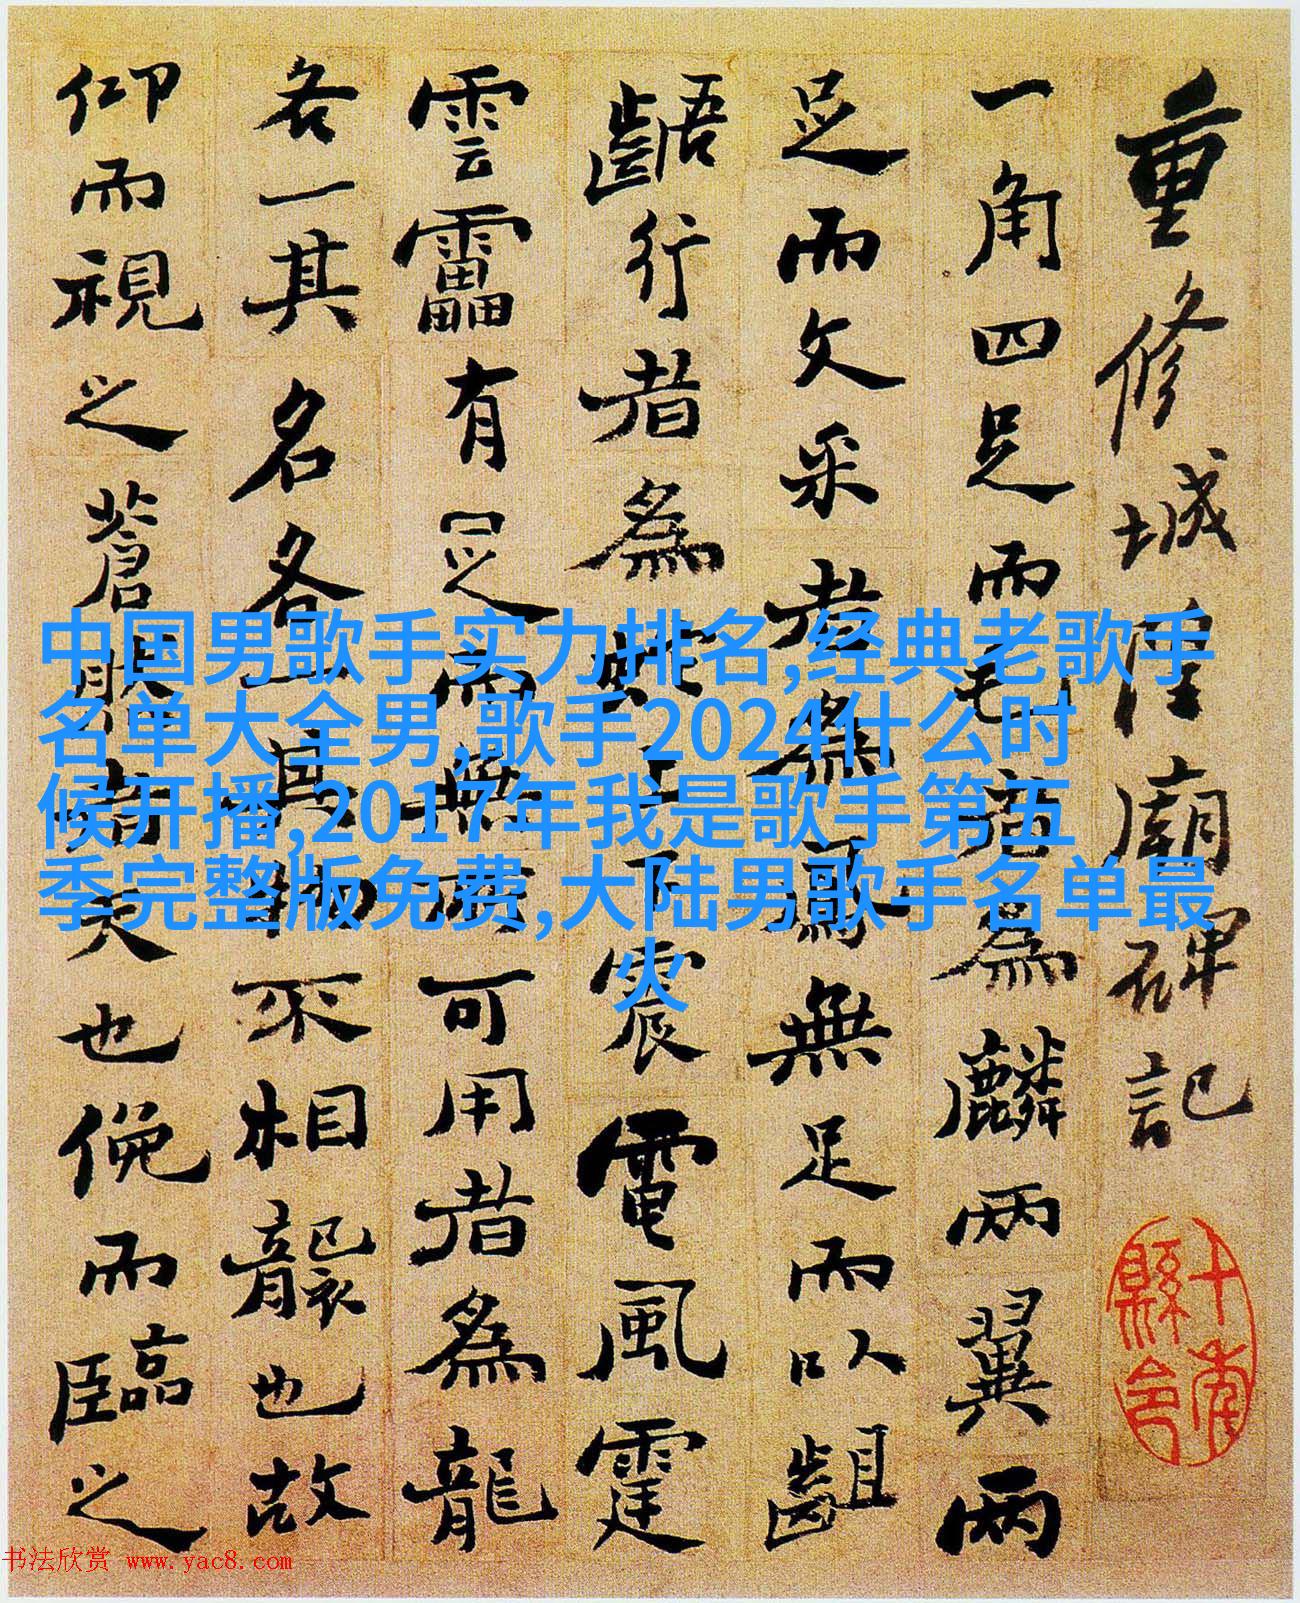 重修城隍廟碑記
一角四足而毛者為麟兩翼兩
足而文采者為鳳無足而以齟
齬行者為蛇上下震電風霆
雲靁有足而無所可用者為龍
各一其名各一其物不相襲也故
仰而視之蒼然者天也俛而臨之
中国男歌手实力排名,经典老歌手
名单大全男,歌手2024什么时
候开播,2017年我是歌手第五
季完整版免费,大陆男歌手名单最
火
书法欣赏 www.yac8.com